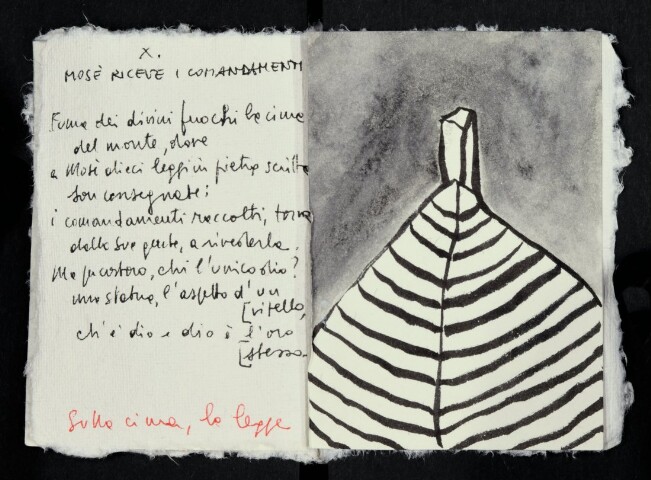 X.
MOSÈ RICEVE I COMANDAMENTI
Fuma dei divini fuochi la cima
del monte, dove
a Mosè dieci leggi in pietra scritte
son consegnate;
i comandamenti raccolti, torna
dalla sua gente, a rivederla.
Ma per costoro, chi l'unico dio?
una statua, l'aspetto d'un
[vitello,
ch'è dio e dio è l'oro
[stesso.
Sulla cima, la legge